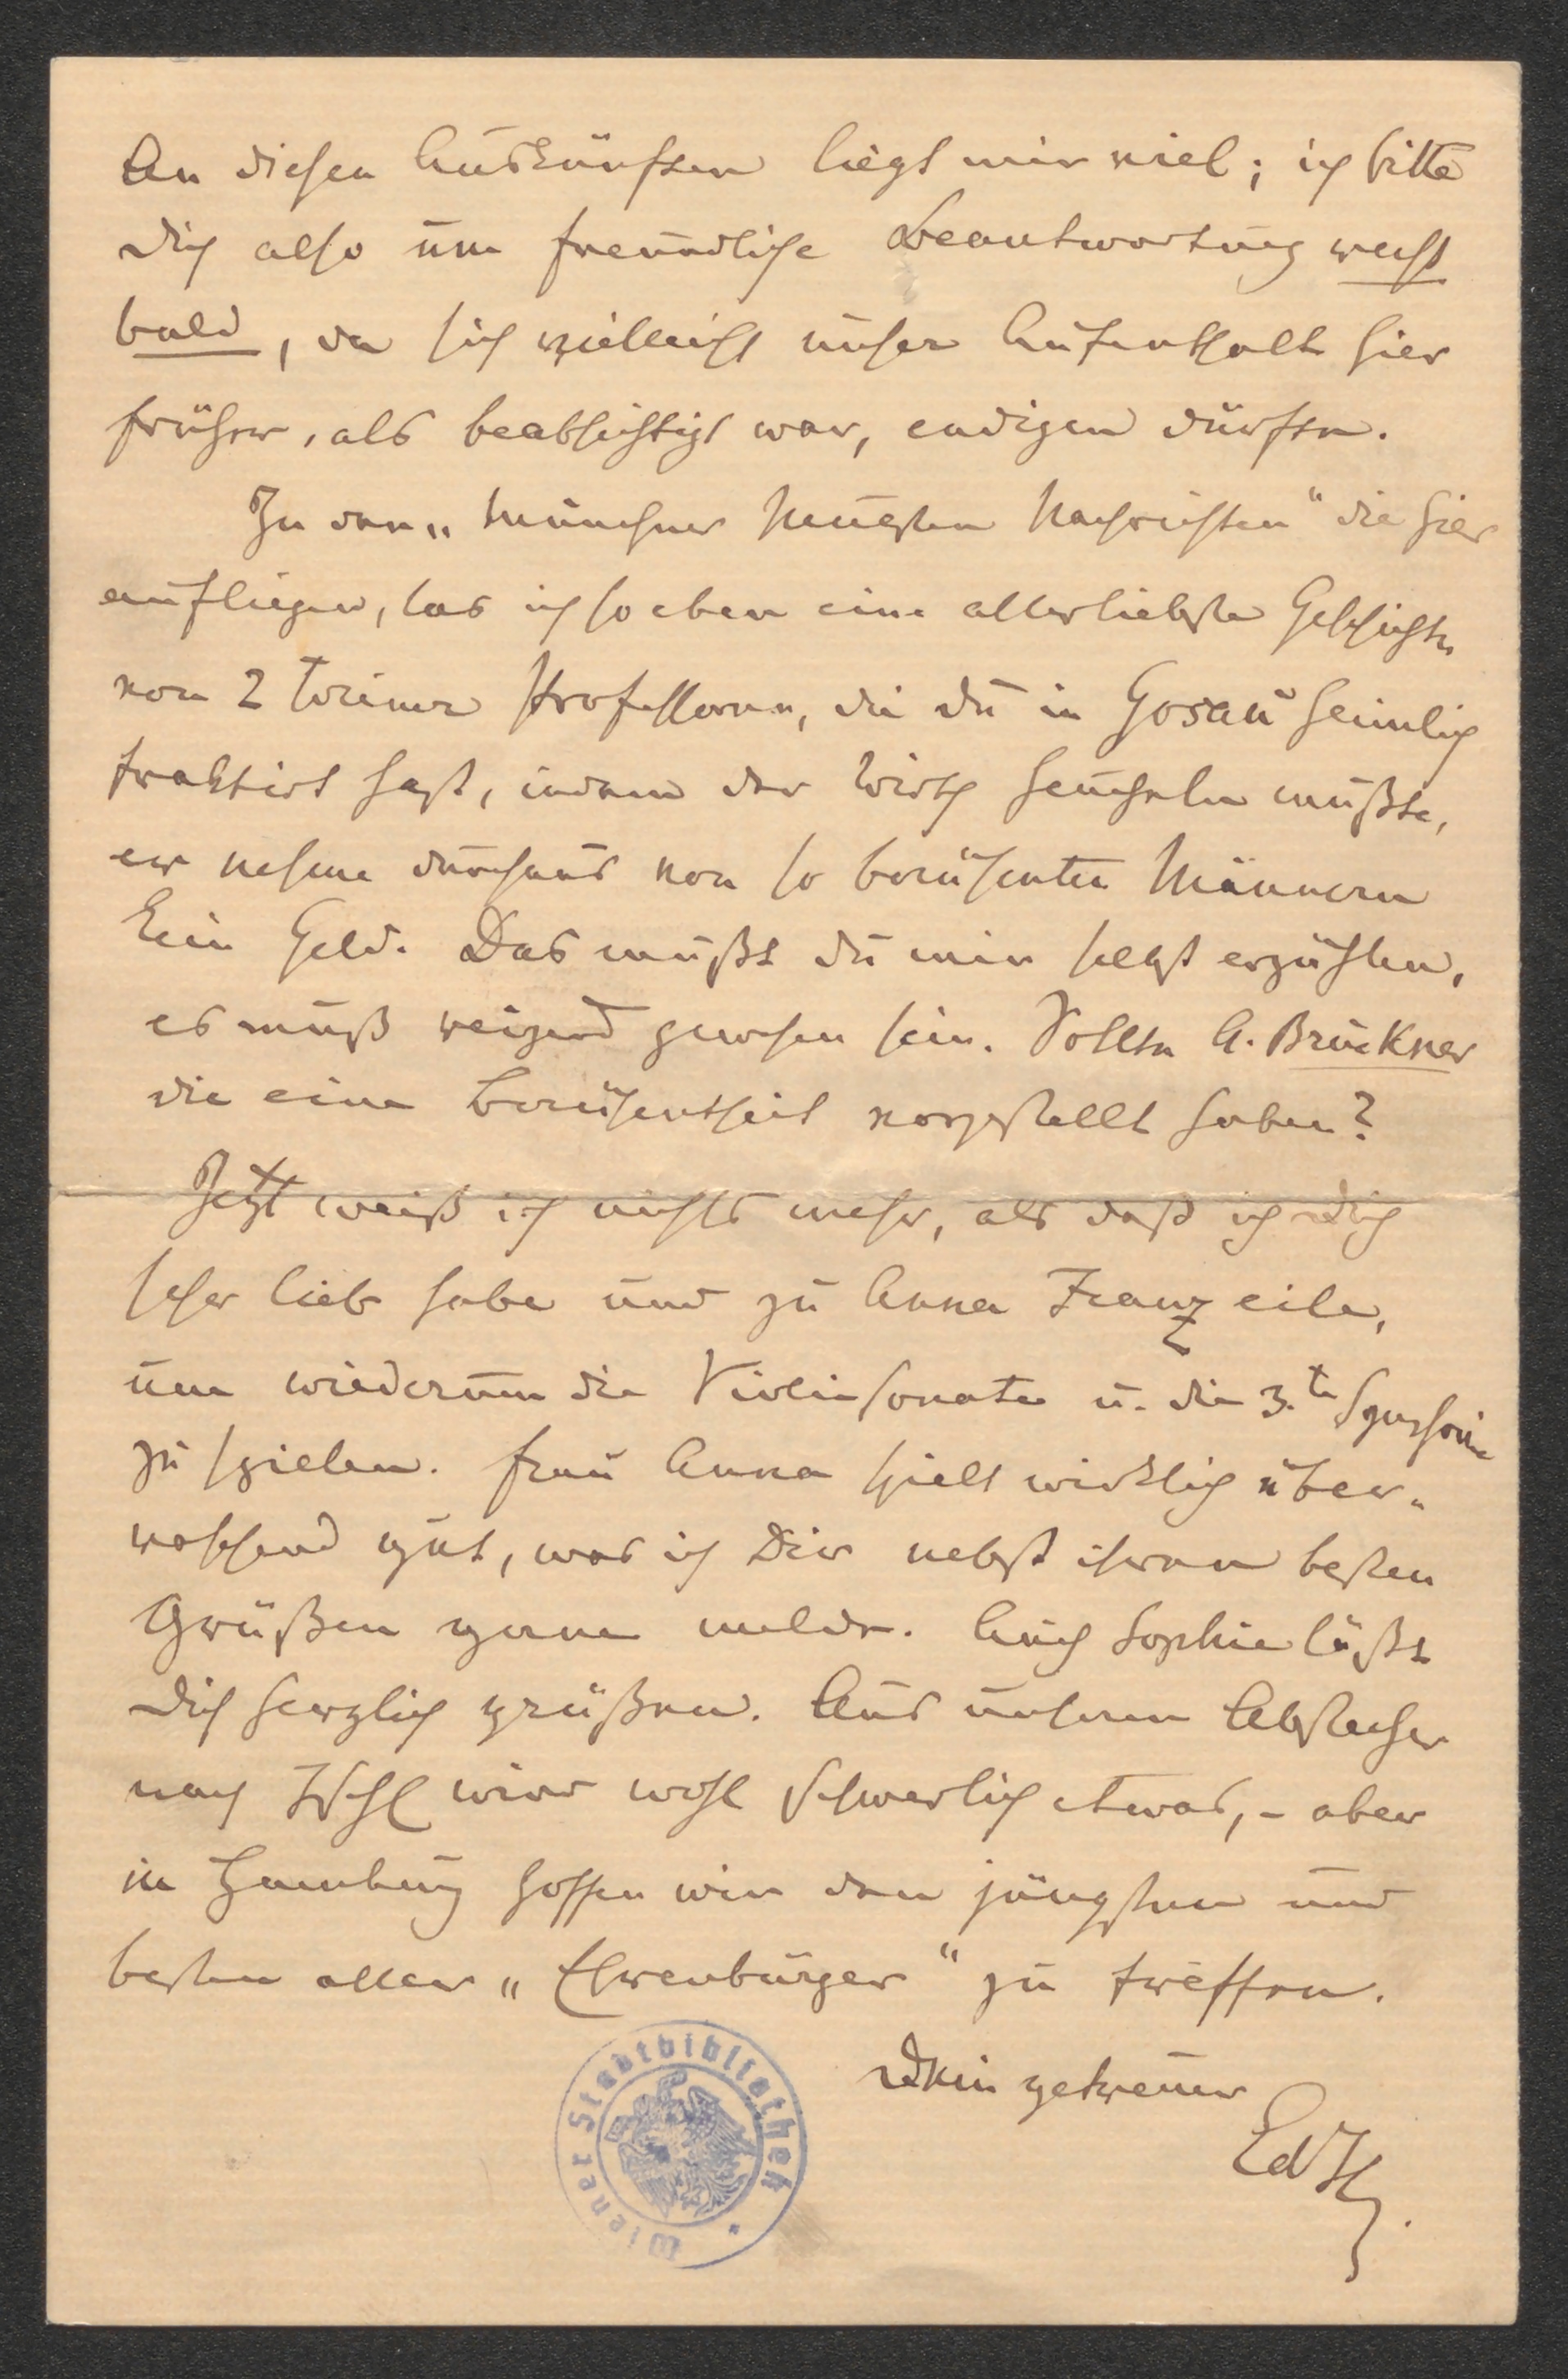 An diesen Auskünften liegt mir viel; ich bitte
Dich also um freundliche Beantwortung recht
bald, da sich vielleicht unser Aufenthalt hier
früher, als beabsichtigt war, endigen dürfte.
In den „Münchner Neuesten Nachrichten“ die hier
aufliegen, las ich soeben eine allerliebste Geschichte
von 2 Wiener Professoren, die Du in Gosau heimlich
traktirt hast, indem der Wirth heucheln mußte,
er nehme durchaus von so berühmten Männern
kein Geld. Das mußt Du mir selbst erzählen,
es muß reizend gewesen sein. Sollte A. Bruckner
die eine Berühmtheit vorgestellt haben?
Jetzt weiß ich nichts mehr, als daß ich Dich
sehr lieb habe und zu Anna Franz eile,
um wiederum die Violinsonate u. die 3.te Symphonie
zu spielen. Frau Anna spielt wirklich über-
raschend gut, was ich Dir nebst ihren besten
Grüßen gerne melde. Auch Sophie läßt
Dich herzlich grüßen. Aus unserem Abstecher
nach Ischl wird wohl schwerlich etwas, – aber
in Hamburg hoffen wir den jüngsten und
besten aller „Ehrenbürger“ zu treffen.
Dein getreuer
EdH.
Wiener Stadtbibliothek